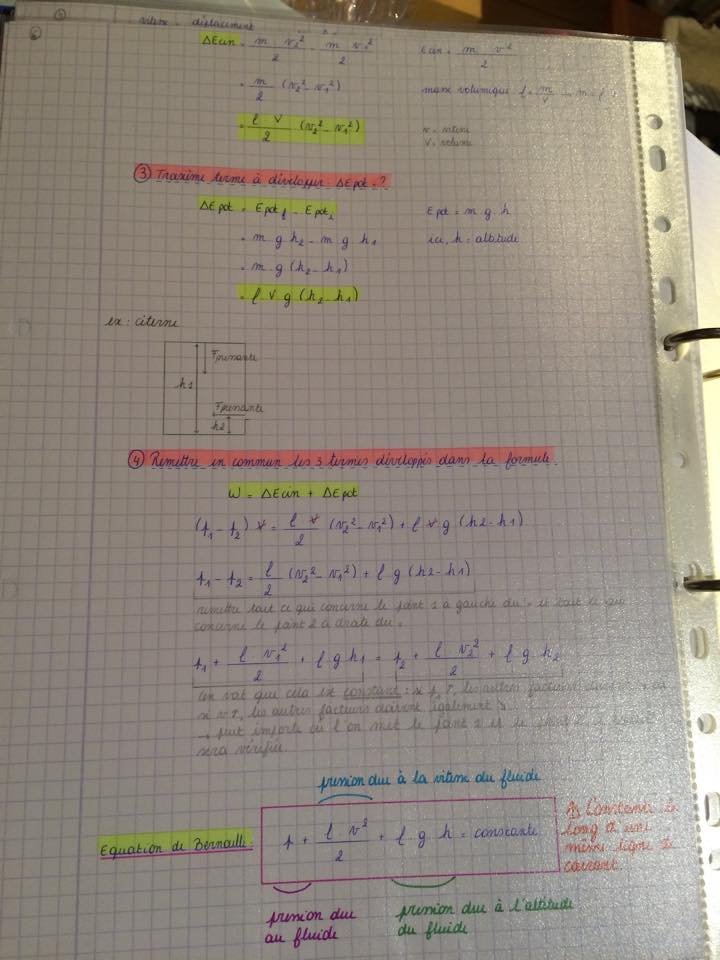 vitesse déplacement
ΔEcin = m v₂² / 2 - m v₁² / 2
Ecin = m v² / 2
= m / 2 (v₂² - v₁²)
masse volumique ρ = m / V → m = ρ
= ρ V / 2 (v₂² - v₁²)
v = vitesse
V = volume
③ Troisième terme à développer ΔEpot = ?
ΔEpot = Epot - Epot
Epot = m g h
= m g h₂ - m g h₁
ici, h = altitude
= m g (h₂ - h₁)
= ρ V g (h₂ - h₁)
ex : citerne
Fpressante
h1
Fpressante
h2
④ Remettre en commun les 3 termes développés dans la formule
W = ΔEcin + ΔEpot
(p₁ - p₂) V = ρ V / 2 (v₂² - v₁²) + ρ V g (h2 - h1)
p₁ - p₂ = ρ / 2 (v₂² - v₁²) + ρ g (h2 - h1)
remettre tout ce qui concerne le point 1 à gauche du = et tout ce qui
concerne le point 2 à droite du =
p₁ + ρ v₁² / 2 + ρ g h₁ = p₂ + ρ v₂² / 2 + ρ g h₂
on voit que cela est constant : si p ↑, les autres facteurs
si v ↑, les autres facteurs doivent également ↓
→ peut importe où l'on met le point 1 et le point 2,
sera vérifiée
pression due à la vitesse du fluide
Equation de Bernoulli :
p + ρ v² / 2 + ρ g h = constante
⚠ Constante
long d'une
même ligne de
courant.
pression due
au fluide
pression due à l'altitude
du fluide